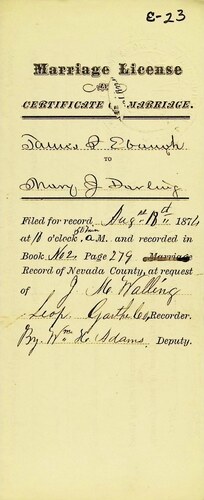 E-23
Marriage License
CERTIFICATE OF MARRIAGE.
James S Ebaugh
TO
Mary J Darling
Filed for record Augst 18th 1874
at 10 o'clock, 50 min A.M. and recorded in
Book No 2 Page 279 Marriage
Record of Nevada County, at request
of J M Walling
Leop. Garthe Co Recorder.
By Wm H Adams Deputy.